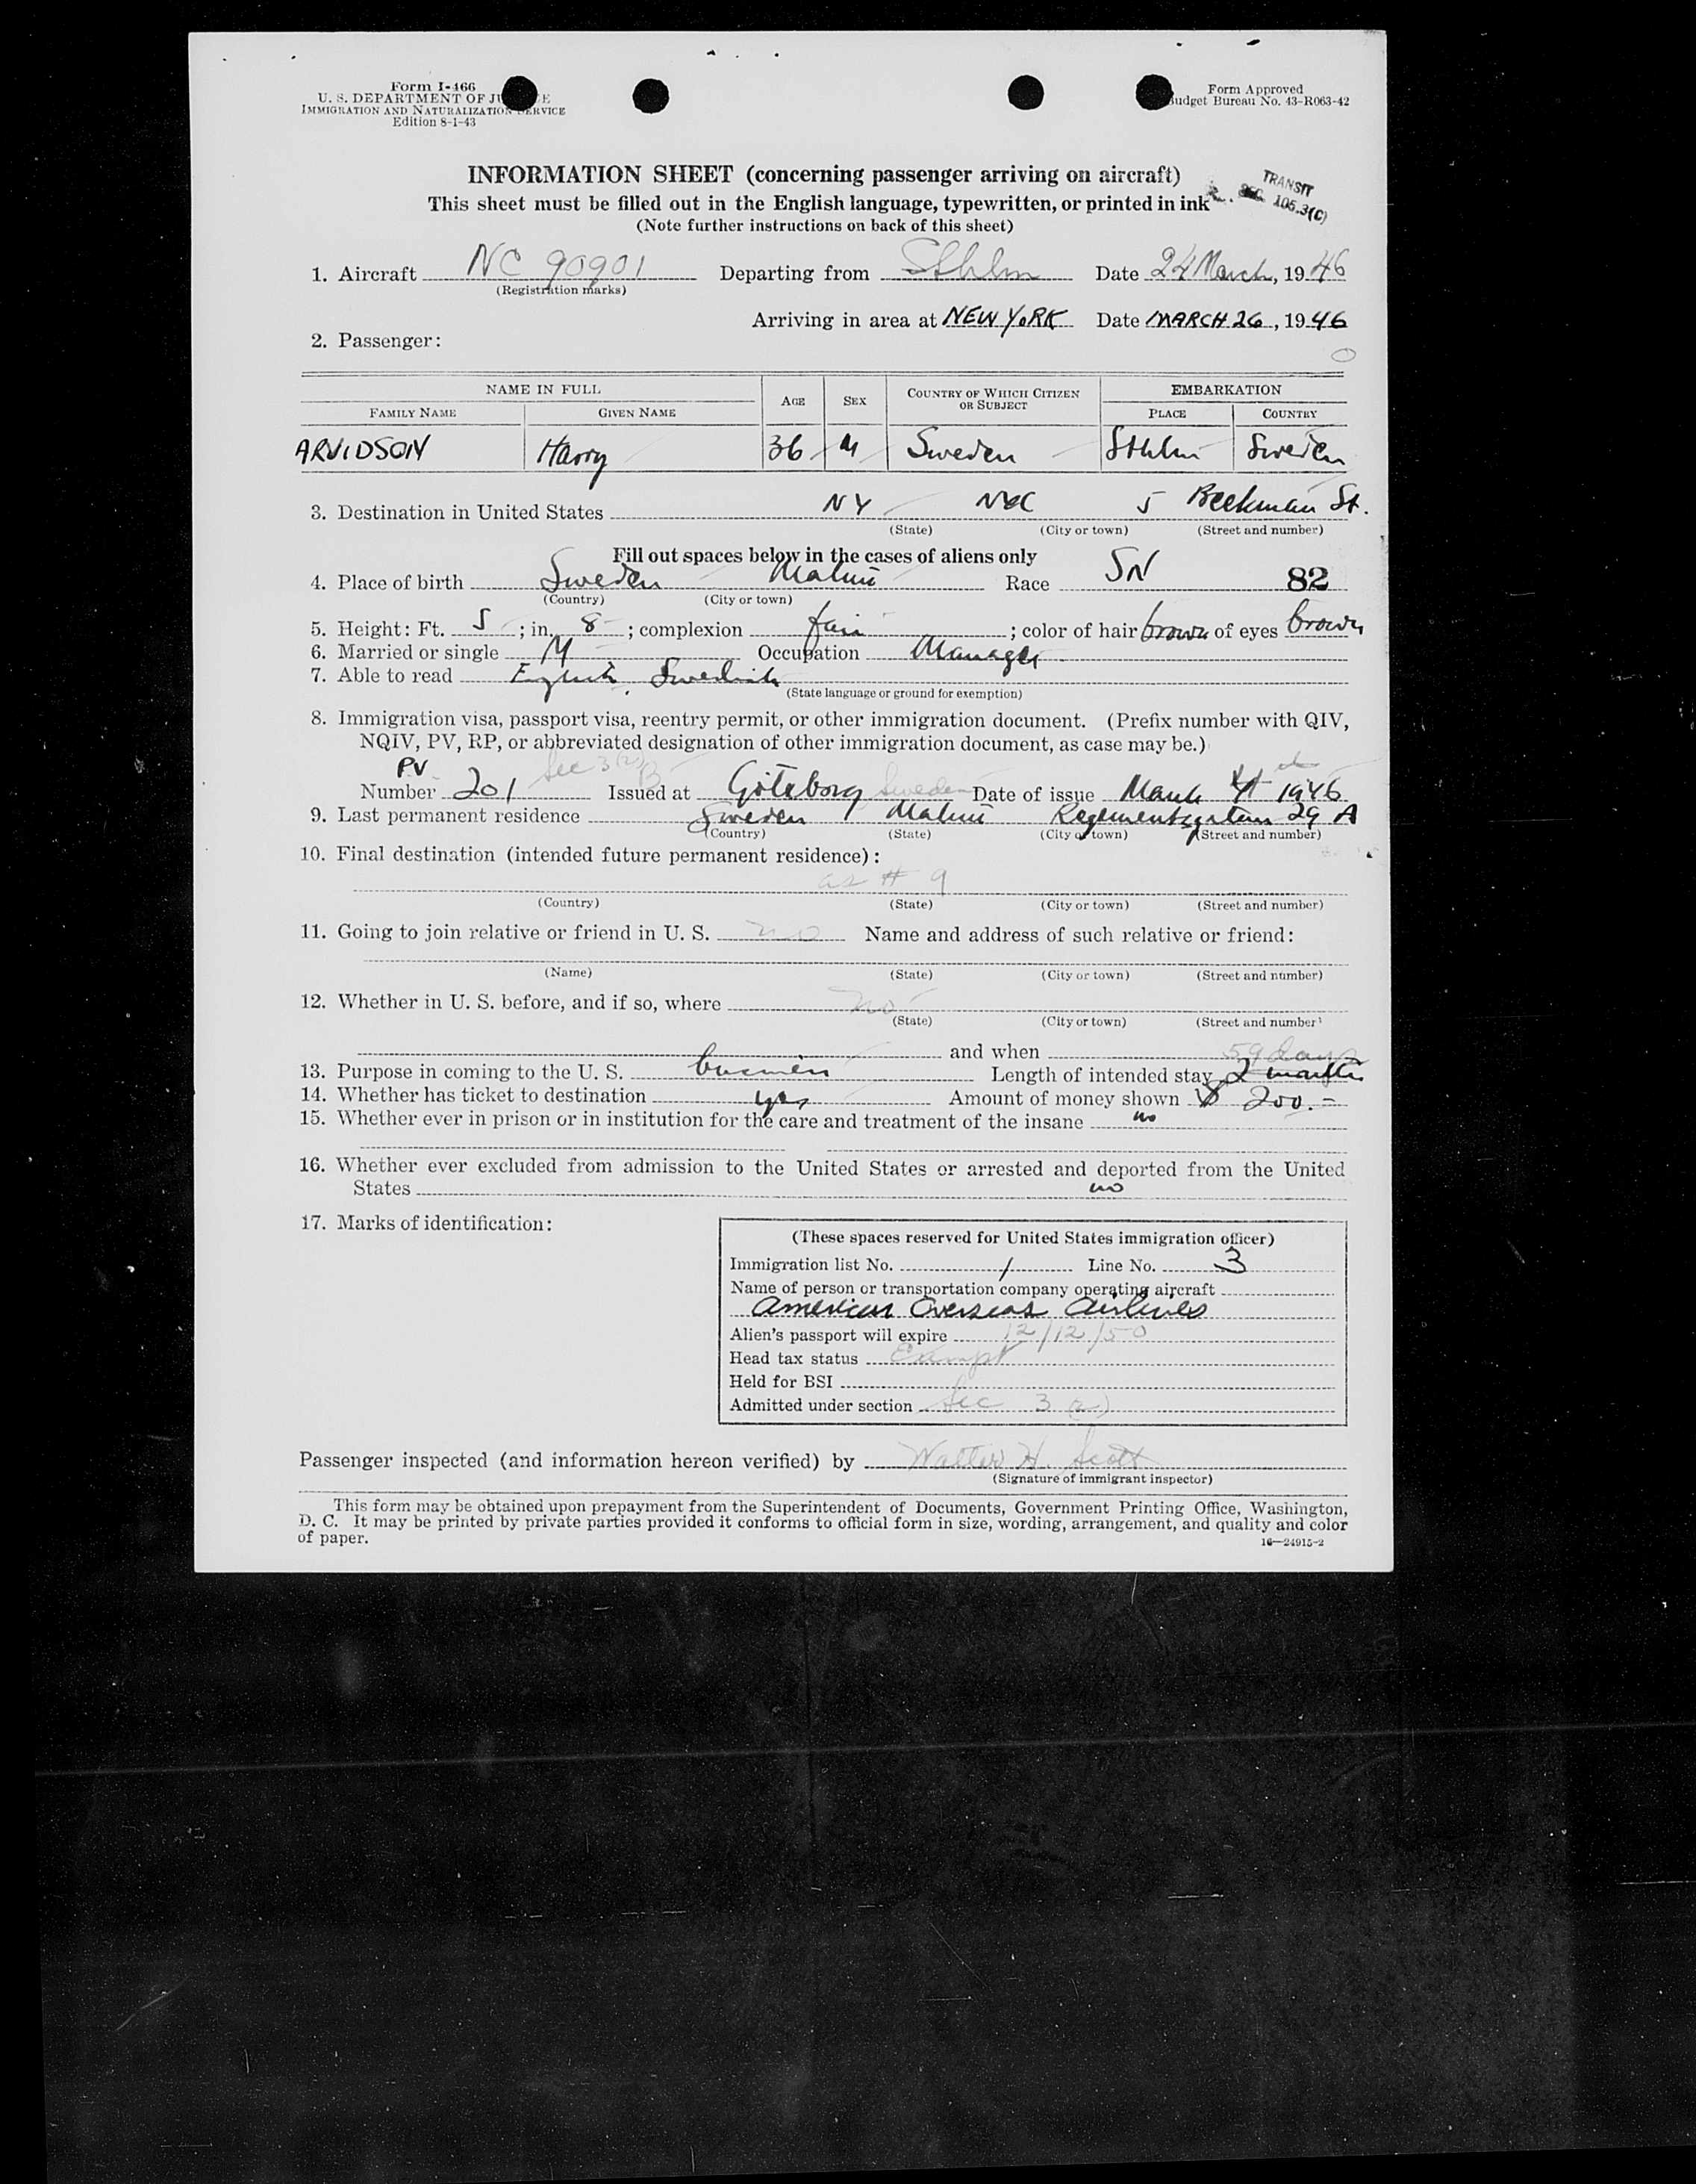 Form I-466
U. S. DEPARTMENT OF
IMMIGRATION AND NATURALIZATION SERVICE
Edition 8-1-43
Form Approved
Budget Bureau No. 43-R063-42
INFORMATION SHEET (concerning passenger arriving on aircraft)
This sheet must be filled out in the English language, typewritten, or printed in ink
(Note further instructions on back of this sheet)
TRANSIT
SEC. 105.3(C)
1. Aircraft NC 90901 Departing from Sthlm Date 24 March, 1946
(Registration marks)
Arriving in area at NEW YORK Date MARCH 26, 1946
2. Passenger:
NAME IN FULL AGE SEX COUNTRY OF WHICH CITIZEN OR SUBJECT EMBARKATION
FAMILY NAME GIVEN NAME PLACE COUNTRY
ARVIDSON Harry 36 M Sweden Sthlm Sweden
3. Destination in United States NY NYC 5 Beekman St.
(State) (City or town) (Street and number)
Fill out spaces below in the cases of aliens only
4. Place of birth Sweden Malmö Race SN 82
(Country) (City or town)
5. Height: Ft. 5 ; in. 8 ; complexion fair ; color of hair brown of eyes brown
6. Married or single M Occupation Manager
7. Able to read English, Swedish
(State language or ground for exemption)
8. Immigration visa, passport visa, reentry permit, or other immigration document. (Prefix number with QIV,
NQIV, PV, RP, or abbreviated designation of other immigration document, as case may be.)
PV Sec 3(2) B
Number 201 Issued at Göteborg Sweden Date of issue March 4th 1946
9. Last permanent residence Sweden Malmö Regementsgatan 29 A
(Country) (State) (City or town) (Street and number)
10. Final destination (intended future permanent residence):
as # 9
(Country) (State) (City or town) (Street and number)
11. Going to join relative or friend in U. S. no Name and address of such relative or friend:
(Name) (State) (City or town) (Street and number)
12. Whether in U. S. before, and if so, where no
(State) (City or town) (Street and number)
and when
59 days
13. Purpose in coming to the U. S. business Length of intended stay 2 months
14. Whether has ticket to destination yes Amount of money shown $ 200.-
15. Whether ever in prison or in institution for the care and treatment of the insane no
16. Whether ever excluded from admission to the United States or arrested and deported from the United
States no
17. Marks of identification:
(These spaces reserved for United States immigration officer)
Immigration list No. 1 Line No. 3
Name of person or transportation company operating aircraft
American Overseas Airlines
Alien's passport will expire 12/12/50
Head tax status Exempt
Held for BSI
Admitted under section Sec 3 (2)
Passenger inspected (and information hereon verified) by Walter H. Scott
(Signature of immigrant inspector)
This form may be obtained upon prepayment from the Superintendent of Documents, Government Printing Office, Washington,
D. C. It may be printed by private parties provided it conforms to official form in size, wording, arrangement, and quality and color
of paper.
16—24915-2